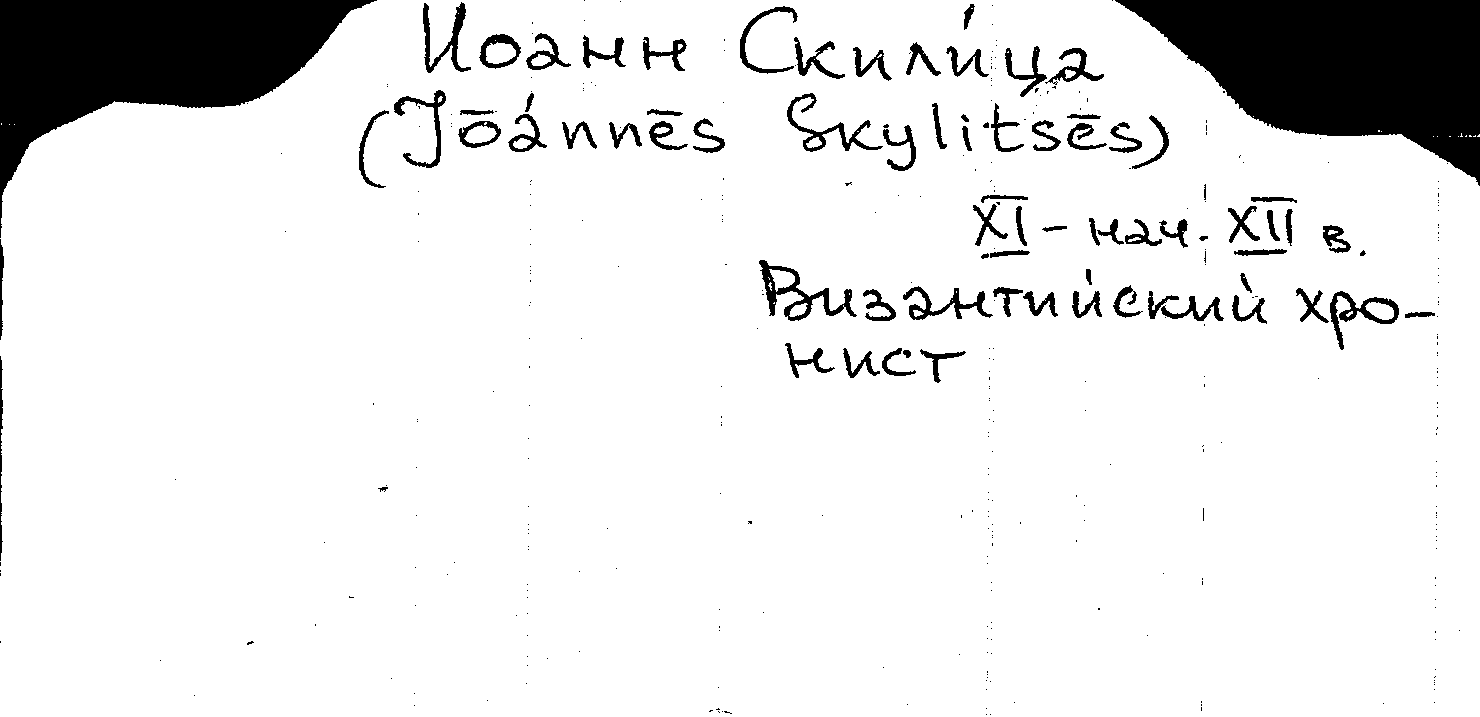 Иоанн Скили́ца
(Jōánnēs Skylitsēs)
XI - нач. XII в.
Византийский хро-
нист